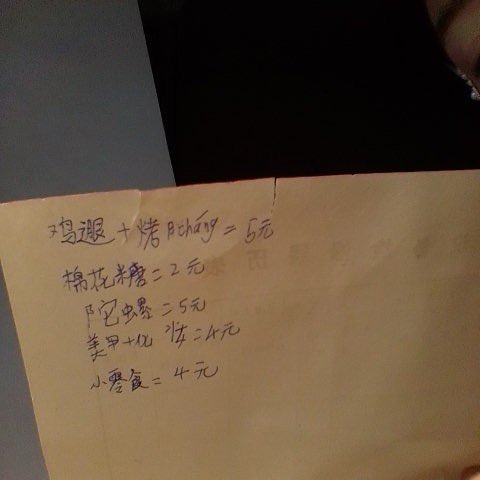 鸡退+烤月cháng=5元
棉花糖=2元
陀螺=5元
美甲+化妆=4元
小零食=4元